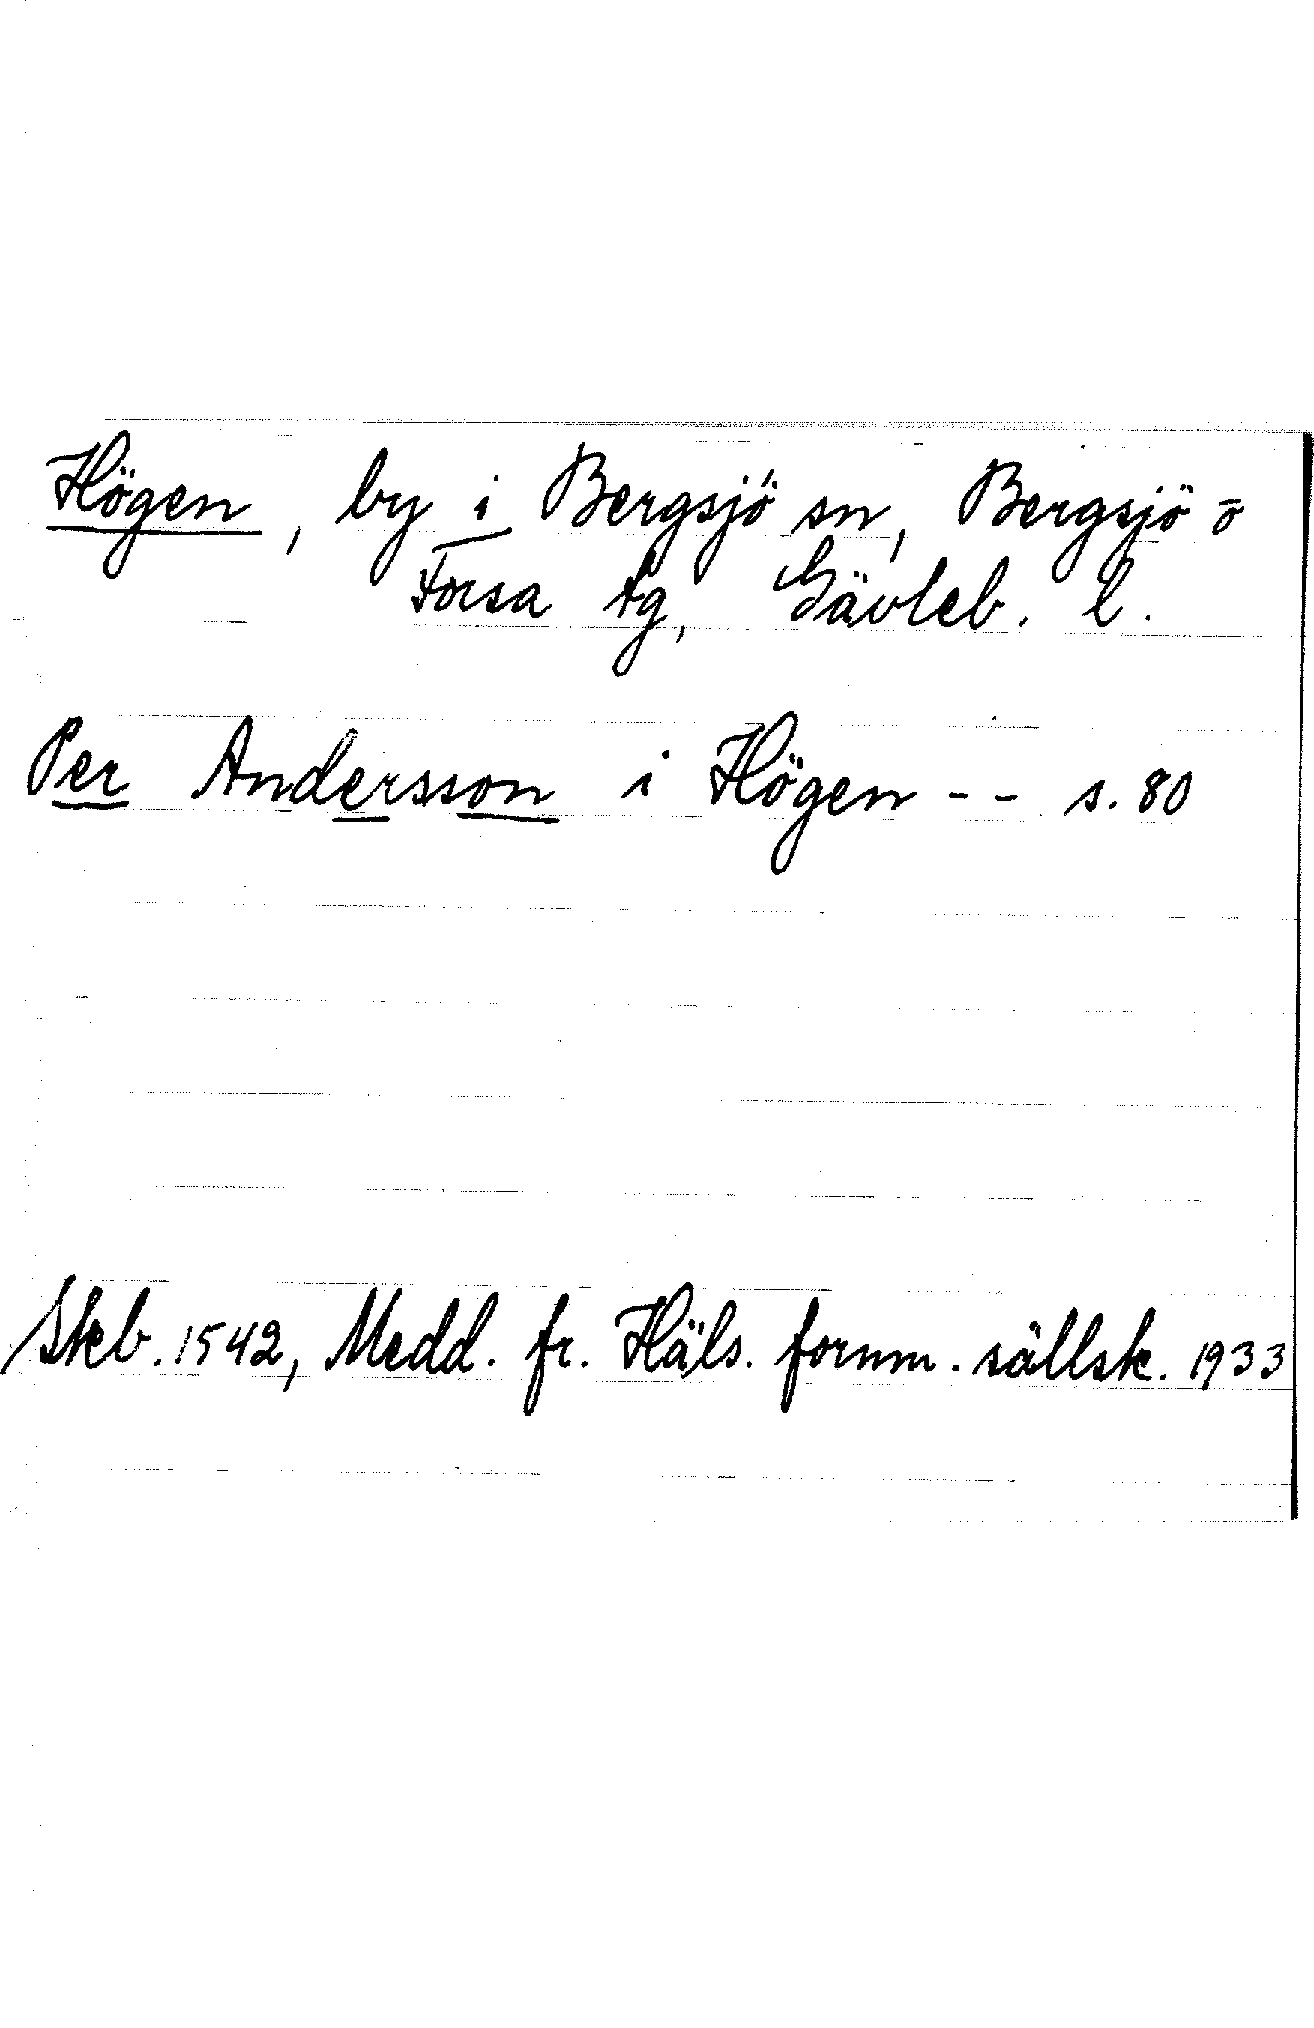 Högen, by i Bergsjö sn, Bergsjö o
Forsa tg, Gävleb. l.
Per Andersson i Högen -- s. 80
Skb. 1542, Medd. fr. Häls. fornm. sällsk. 1933